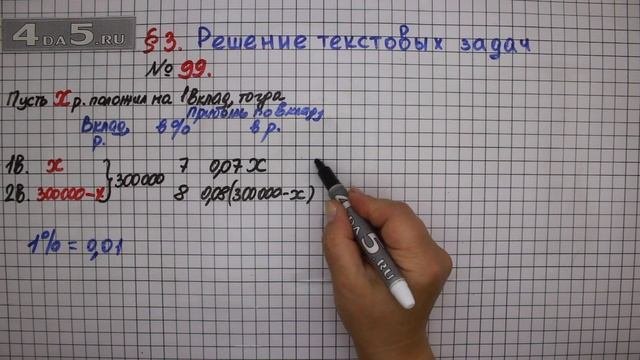 4DA5.RU
§3. Решение текстовых задач
№ 99.
Пусть x р. положил на 1 вклад, тогда
Вклад, р. в % Прибыль по вкладу, в р.
1В. x 7 0,07x
300000
2В. 300000-x 8 0,08(300000-x)
1% = 0,01
4DA5.RU